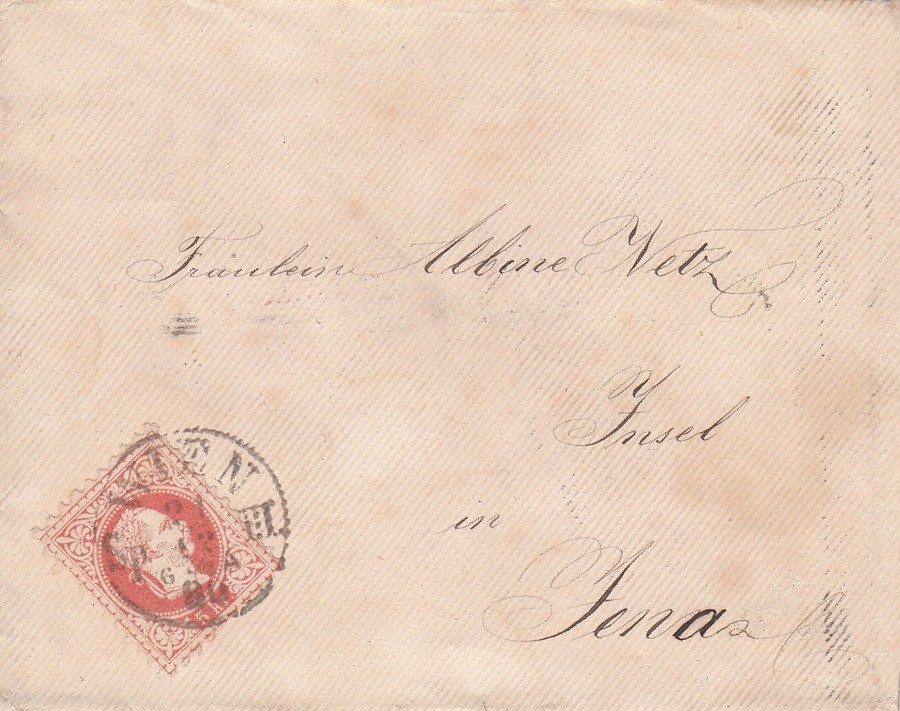 Fräulein Albine Netz
Insel
in
Jena
WIEN
5 KR